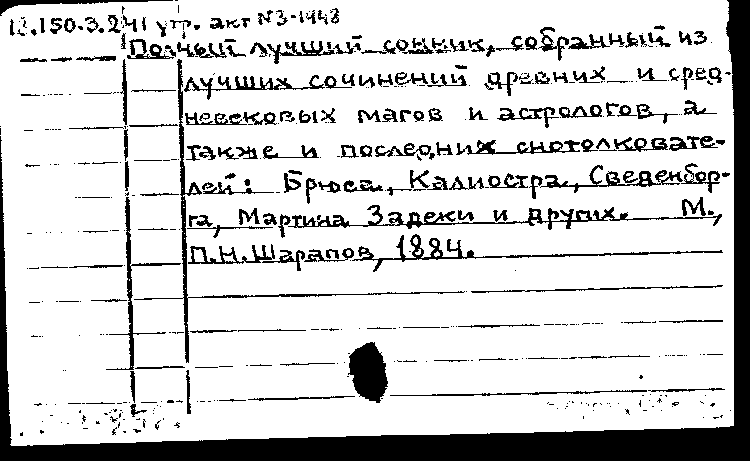 18.150.3.241 утр. акт №3-1448
Полный лучший сонник, собранный из
лучших сочинений древних и сред-
невековых магов и астрологов, а
также и последних снотолковате-
лей: Брюса, Калиостра, Сведенбор-
га, Мартина Задеки и других. М.,
П.Н.Шарапов, 1884.